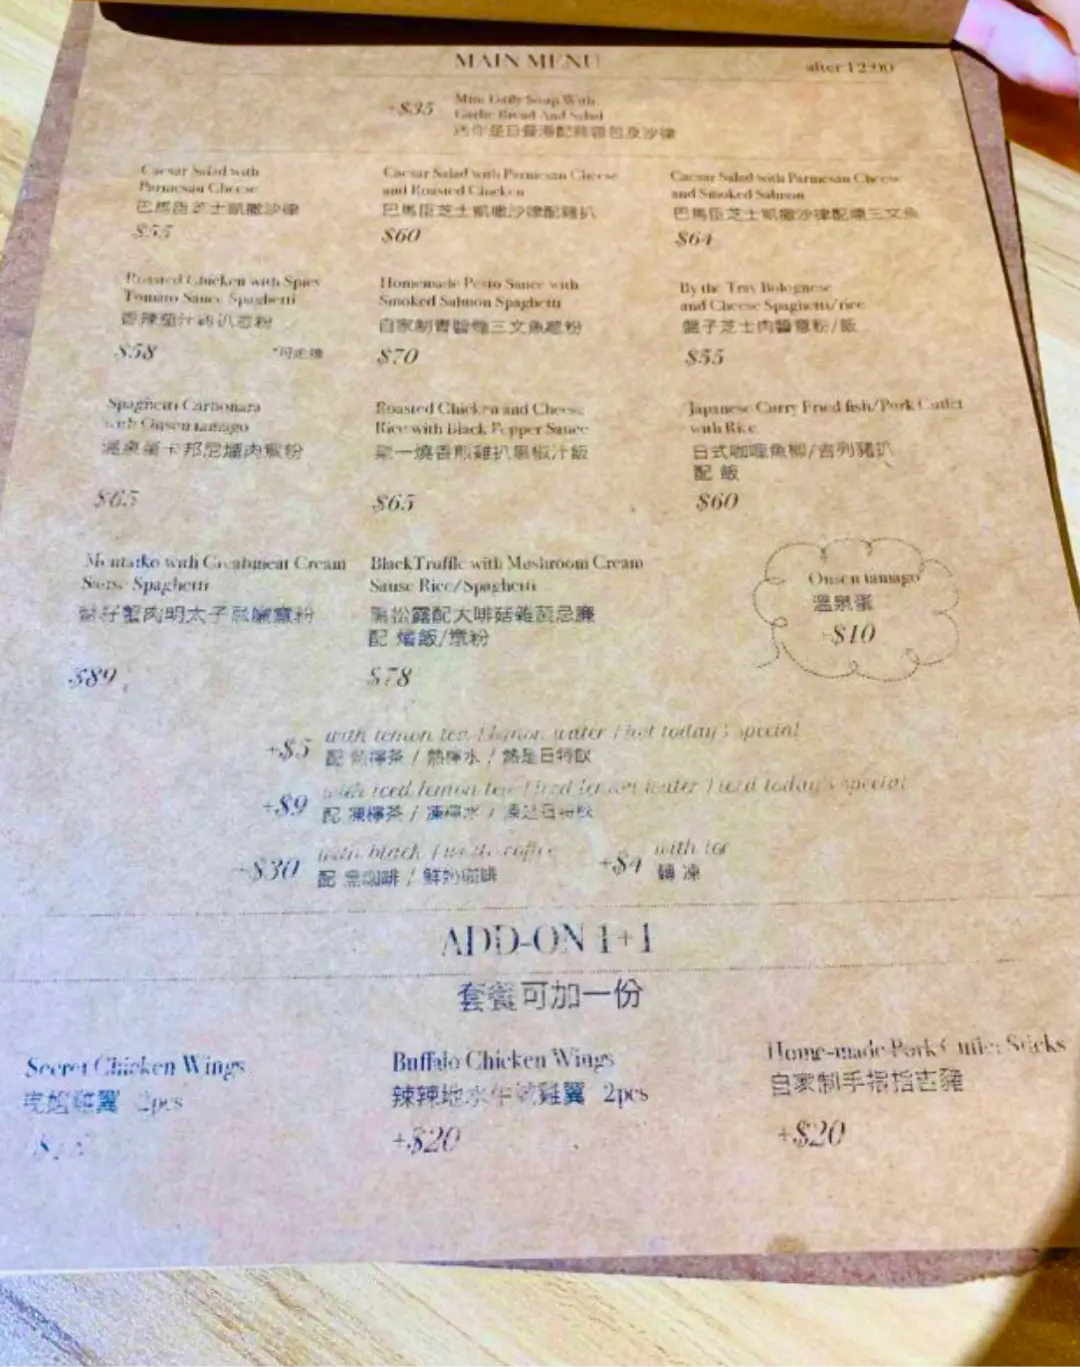 MAIN MENU
after 12:00
+$35
Mini Daily Soup With
Garlic Bread And Salad
迷你是日餐湯配蒜蓉包及沙律
Caesar Salad with
Parmesan Cheese
巴馬臣芝士凱撒沙律
$55
Caesar Salad with Parmesan Cheese
and Roasted Chicken
巴馬臣芝士凱撒沙律配雞扒
$60
Caesar Salad with Parmesan Cheese
and Smoked Salmon
巴馬臣芝士凱撒沙律配煙三文魚
$64
Roasted Chicken with Spicy
Tomato Sauce Spaghetti
香辣茄汁雞扒意粉
$58
Homemade Pesto Sauce with
Smoked Salmon Spaghetti
自家制青醬煙三文魚意粉
$70
By the Tray Bolognese
and Cheese Spaghetti/rice
芝士肉醬意粉/飯
$55
Spaghetti Carbonara
with Onsen tamago
溫泉蛋卡邦尼煙肉意粉
$65
Roasted Chicken and Cheese
Rice with Black Pepper Sauce
燒香煎雞扒黑椒汁飯
$65
Japanese Curry Fried fish/Pork Cutlet
with Rice
日式咖喱魚柳/吉列豬扒
配 飯
$60
Mentaiko with Creabmeat Cream
Sause Spaghetti
蟹肉明太子忌廉意粉
$89
Black Truffle with Mushroom Cream
Sause Rice/Spaghetti
黑松露配大啡菇雜菌忌廉
配 飯/意粉
$78
Onsen tamago
溫泉蛋
+$10
+$5
with lemon tea / lemon water / hot today's special
配 熱檸茶 / 熱檸水 / 熱是日特飲
+$9
with iced lemon tea / iced lemon water / iced today's special
配 凍檸茶 / 凍檸水 / 凍是日特飲
+$30
with black / white coffee
配 黑咖啡 / 鮮奶咖啡
+$4
with ice
轉 凍
ADD-ON 1+1
套餐可加一份
Secret Chicken Wings
雞翼 2pcs
Buffalo Chicken Wings
辣辣地水牛城雞翼 2pcs
+$20
Home-made Pork Cutlet Sticks
自家制手指吉豬
+$20